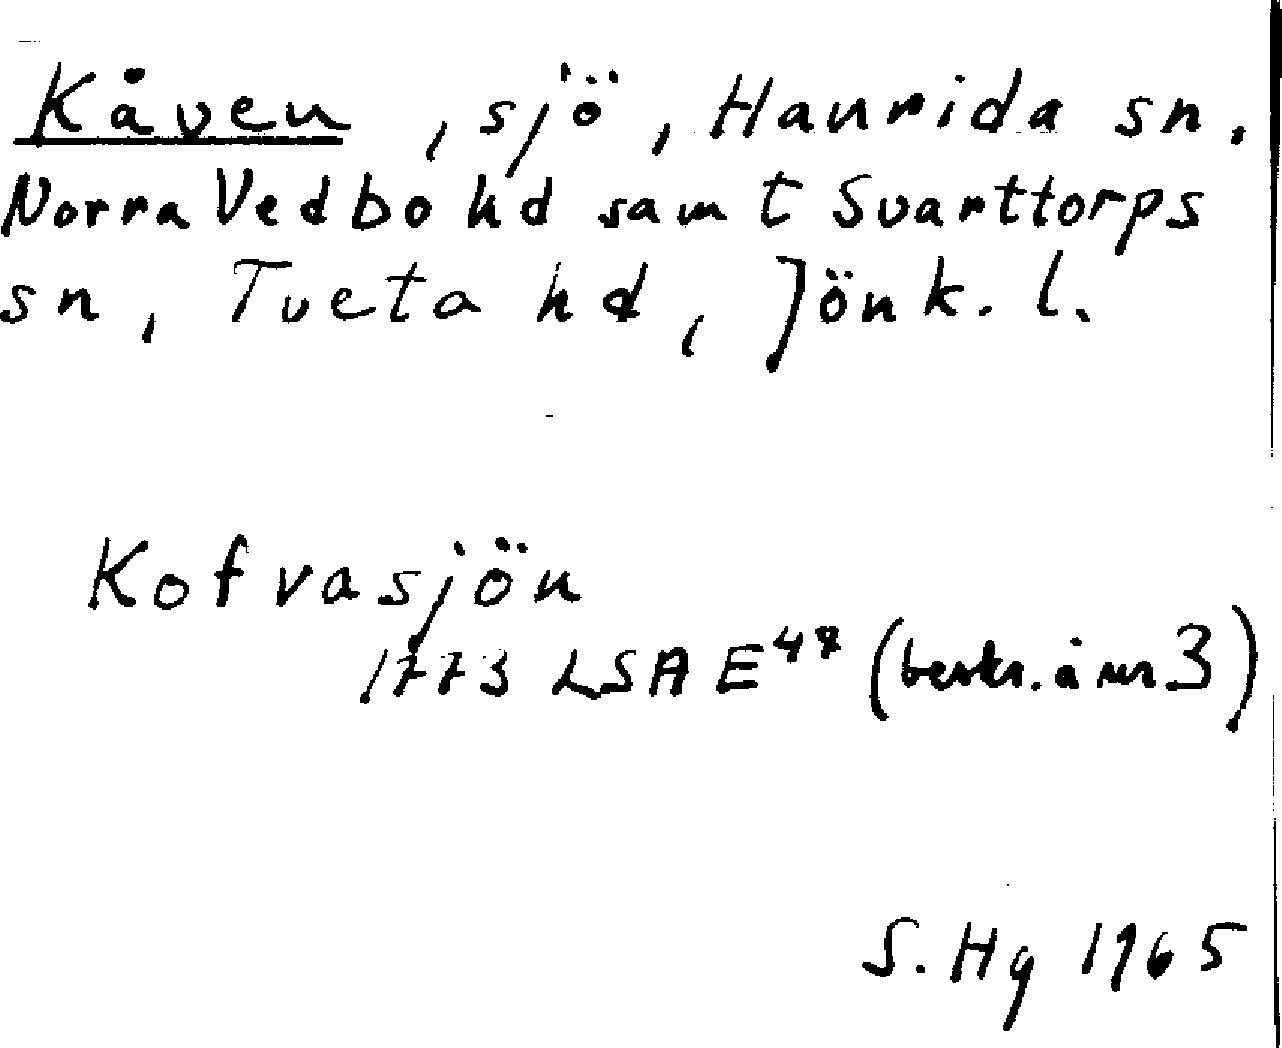 Kåven, sjö, Haurida sn.
Norra Vedbo hd samt Svarttorps
sn, Tveta hd, Jönk. l.
Kofvasjön
1773 LSA E 48 (beskr. å nr 3)
S. Hg 1965